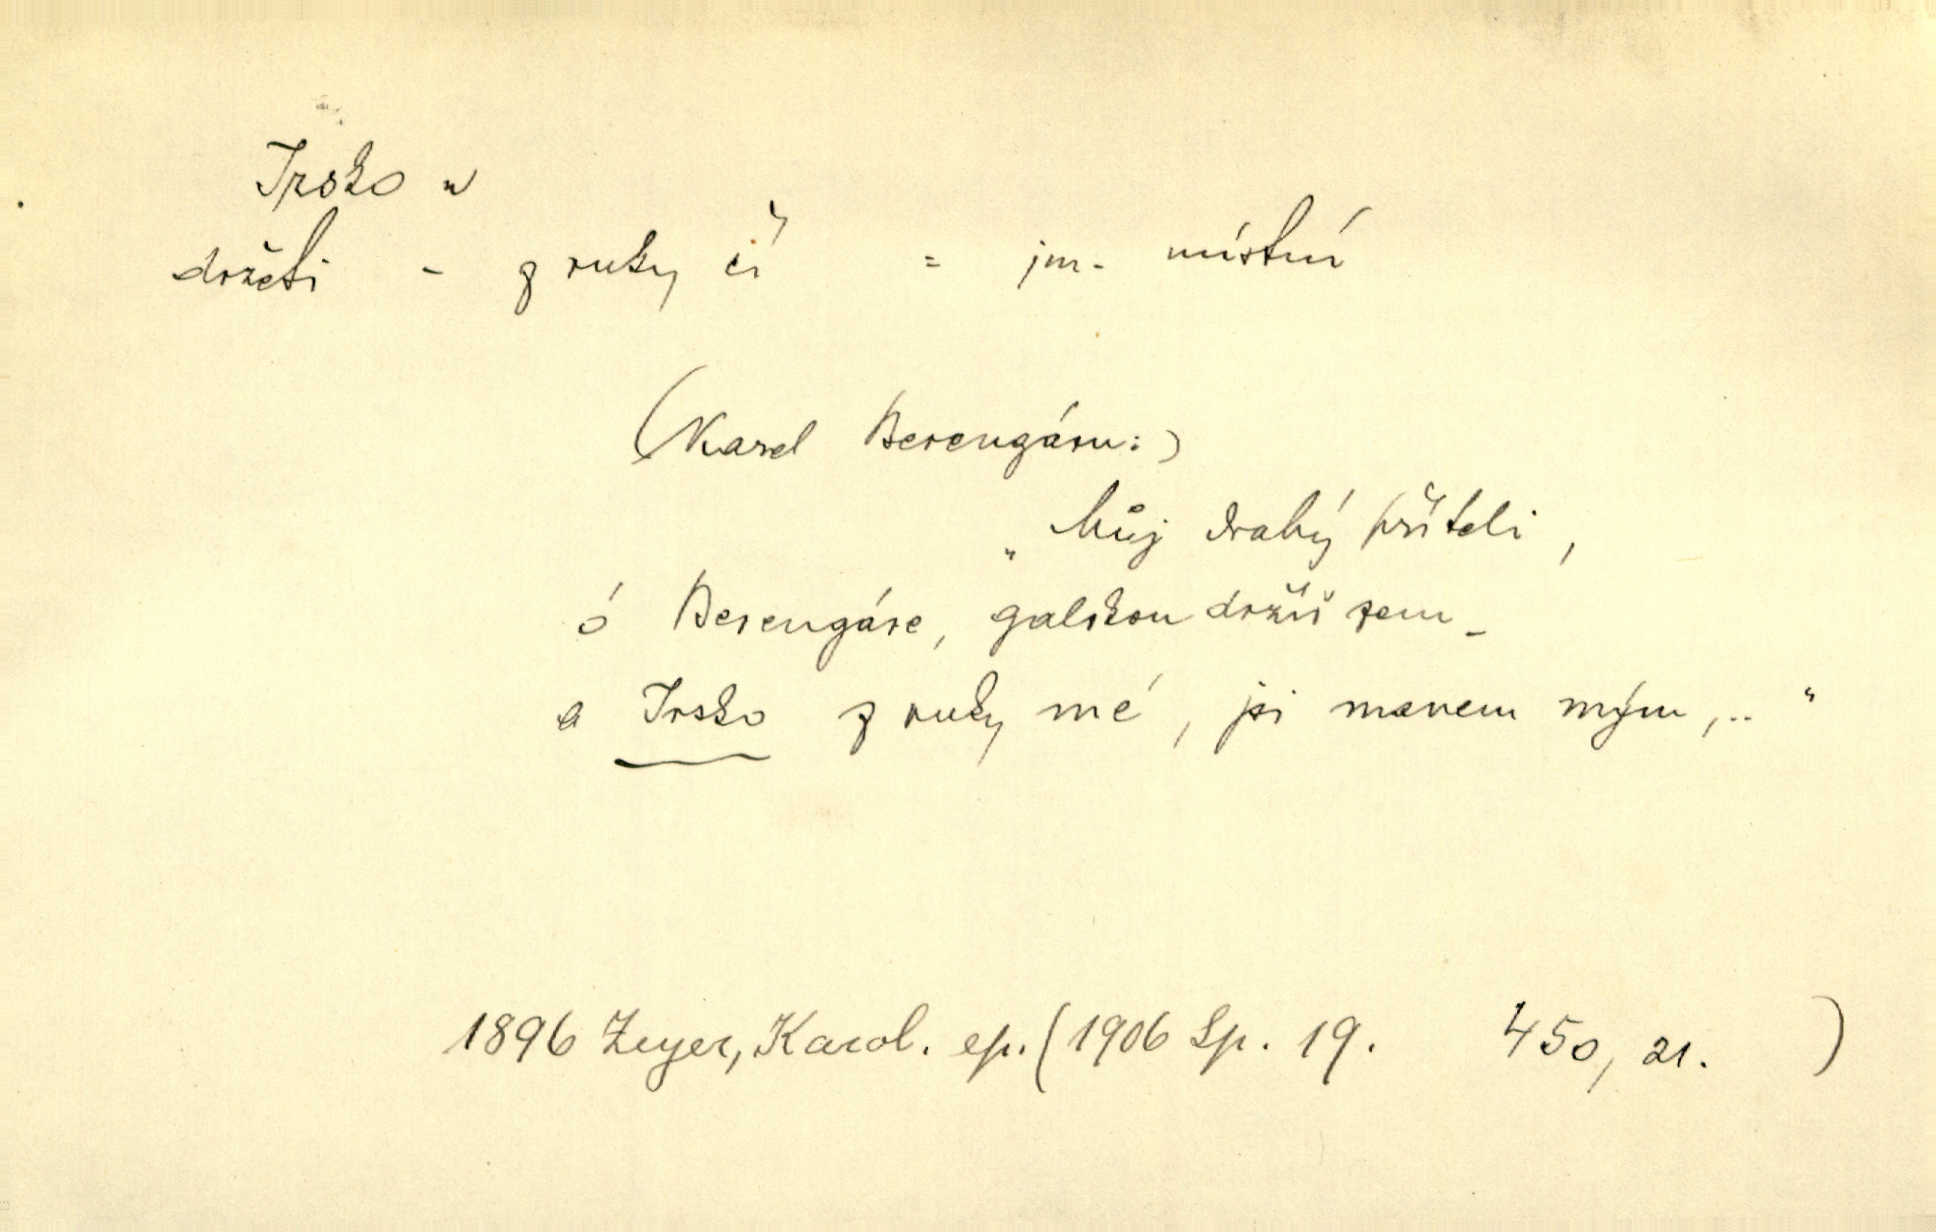 Irsko
držeti - z ruky čí = jm. místní
(Karel Berengáru:)
„Můj drahý příteli,
ó Berengáre, galskou držíš zem -
a Irsko z ruky mé, jsi manem mým,.. "
1896 Zeyer, Karol. ep. (1906 Sp. 19. 450, 21. )